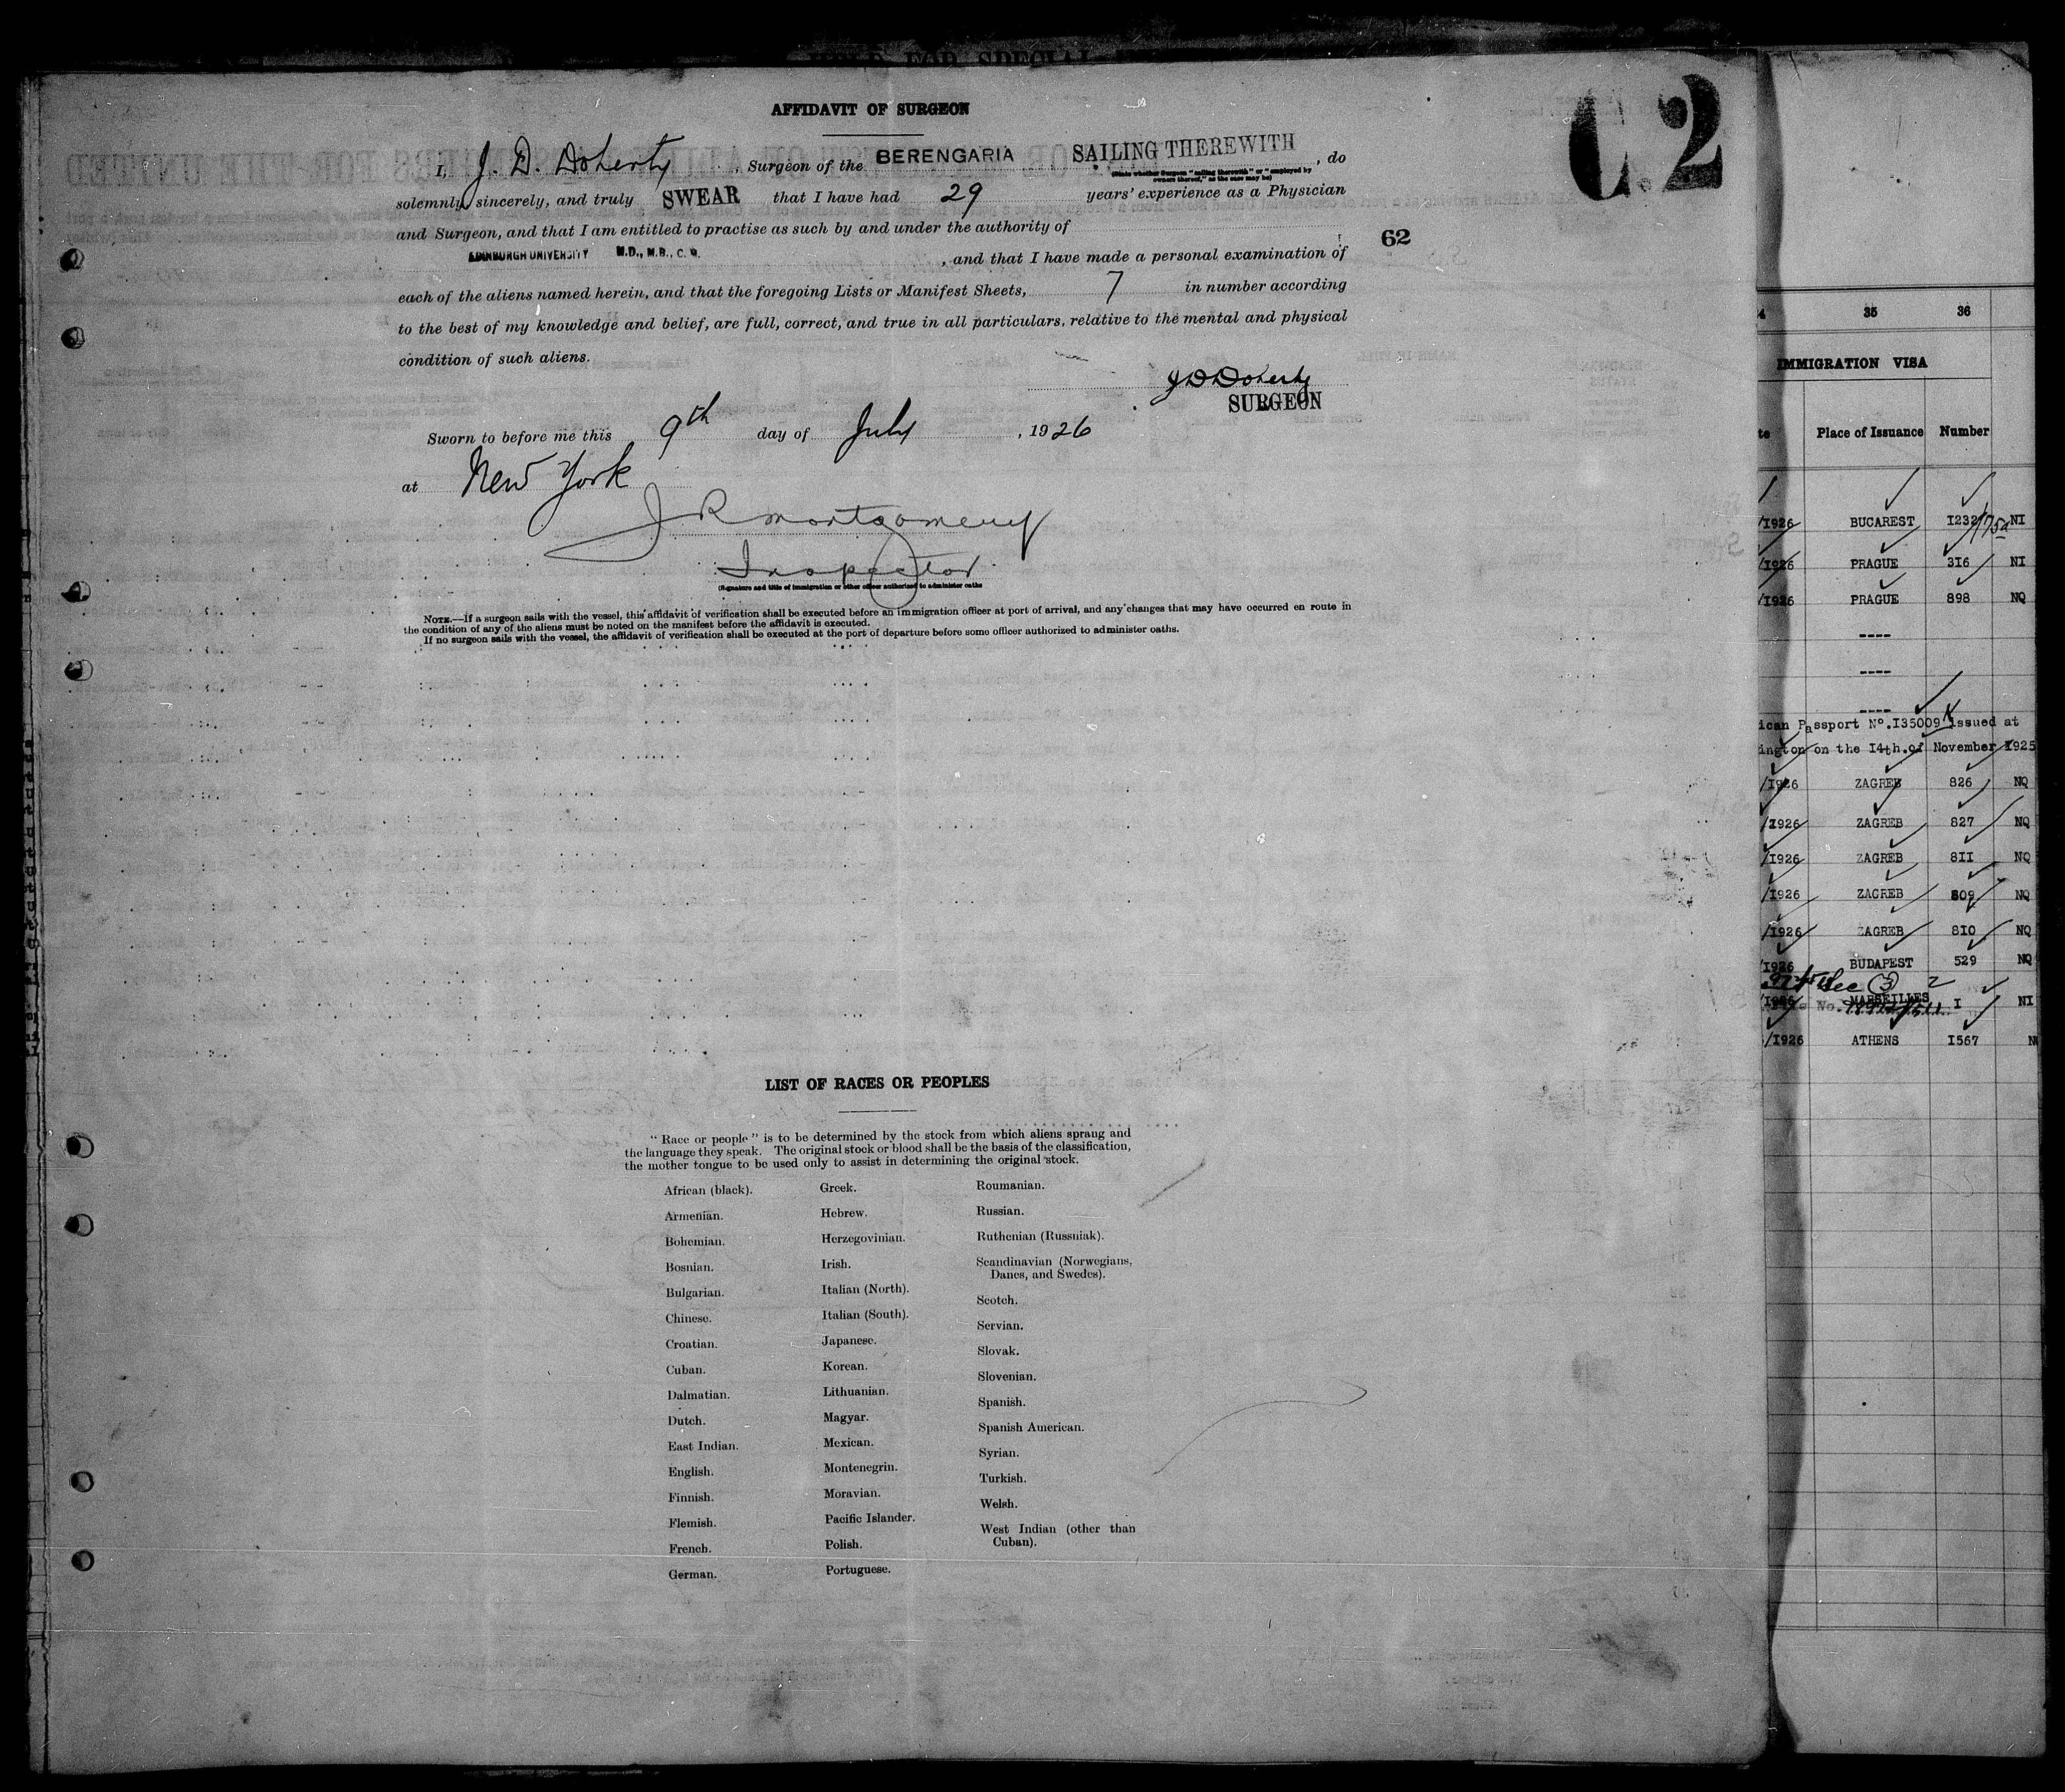 C.2
AFFIDAVIT OF SURGEON
I, J. D. Doherty, Surgeon of the BERENGARIA SAILING THEREWITH, do
(State whether Surgeon "sailing therewith" or "employed by
owners thereof," as the case may be)
solemnly, sincerely, and truly SWEAR that I have had 29 years' experience as a Physician
and Surgeon, and that I am entitled to practise as such by and under the authority of
62
EDINBURGH UNIVERSITY M.D., M.B., C. M. , and that I have made a personal examination of
each of the aliens named herein, and that the foregoing Lists or Manifest Sheets, 7 in number according
to the best of my knowledge and belief, are full, correct, and true in all particulars, relative to the mental and physical
condition of such aliens.
J D Doherty
SURGEON
Sworn to before me this 9th day of July, 1926
at New York
J R Montgomery
Inspector
(Signature and title of immigration or other officer authorized to administer oaths
NOTE.—If a surgeon sails with the vessel, this affidavit of verification shall be executed before an immigration officer at port of arrival, and any changes that may have occurred en route in
the condition of any of the aliens must be noted on the manifest before the affidavit is executed.
If no surgeon sails with the vessel, the affidavit of verification shall be executed at the port of departure before some officer authorized to administer oaths.
LIST OF RACES OR PEOPLES
"Race or people" is to be determined by the stock from which aliens sprang and
the language they speak. The original stock or blood shall be the basis of the classification,
the mother tongue to be used only to assist in determining the original stock.
African (black).
Armenian.
Bohemian.
Bosnian.
Bulgarian.
Chinese.
Croatian.
Cuban.
Dalmatian.
Dutch.
East Indian.
English.
Finnish.
Flemish.
French.
German.
Greek.
Hebrew.
Herzegovinian.
Irish.
Italian (North).
Italian (South).
Japanese.
Korean.
Lithuanian.
Magyar.
Mexican.
Montenegrin.
Moravian.
Pacific Islander.
Polish.
Portuguese.
Roumanian.
Russian.
Ruthenian (Russniak).
Scandinavian (Norwegians,
Danes, and Swedes).
Scotch.
Servian.
Slovak.
Slovenian.
Spanish.
Spanish American.
Syrian.
Turkish.
Welsh.
West Indian (other than
Cuban).
35 36
IMMIGRATION VISA
Place of Issuance Number
/1926 BUCAREST 1232 NI
/1926 PRAGUE 316 NI
/1926 PRAGUE 898 NQ
----
----
----
ican Passport No. 135009 issued at
ington on the 14th. of November 1925
/1926 ZAGREB 826 NQ
/1926 ZAGREB 827 NQ
/1926 ZAGREB 811 NQ
/1926 ZAGREB 809 NQ
/1926 ZAGREB 810 NQ
/1926 BUDAPEST 529 NQ
Sec 3 2
/1926 MARSEILLES I NI
/1926 ATHENS 1567